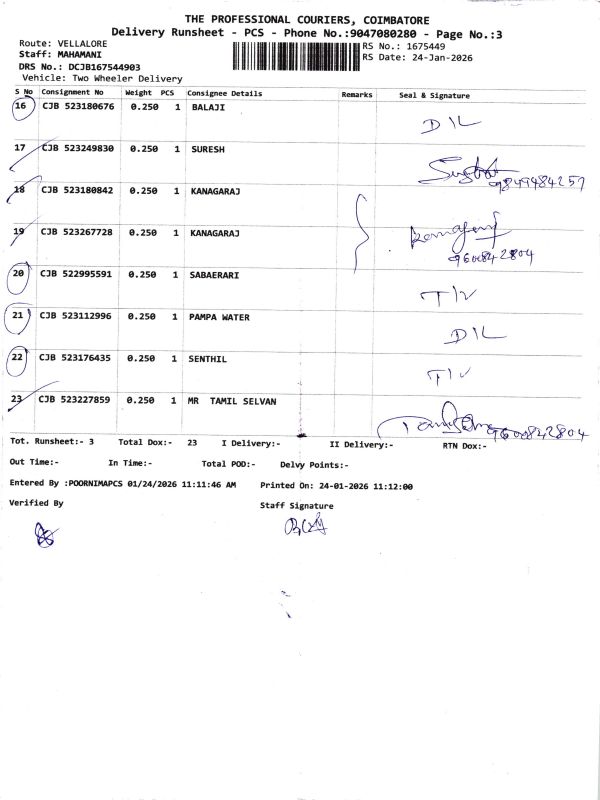 THE PROFESSIONAL COURIERS, COIMBATORE
Delivery Runsheet - PCS - Phone No.:9047080280 - Page No.:3
Route: VELLALORE
RS No.: 1675449
Staff: MAHAMANI
RS Date: 24-Jan-2026
DRS No.: DCJB167544903
Vehicle: Two Wheeler Delivery
S No Consignment No Weight PCS Consignee Details Remarks Seal & Signature
16 CJB 523180676 0.250 1 BALAJI D\L
17 CJB 523249830 0.250 1 SURESH
18 CJB 523180842 0.250 1 KANAGARAJ
19 CJB 523267728 0.250 1 KANAGARAJ
9600842804
20 CJB 522995591 0.250 1 SABAERARI
21 CJB 523112996 0.250 1 PAMPA WATER D\L
22 CJB 523176435 0.250 1 SENTHIL
23 CJB 523227859 0.250 1 MR TAMIL SELVAN
9600842804
Tot. Runsheet:- 3 Total Dox:- 23 I Delivery:- II Delivery:- RTN Dox:-
Out Time:- In Time:- Total POD:- Delvy Points:-
Entered By :POORNIMAPCS 01/24/2026 11:11:46 AM Printed On: 24-01-2026 11:12:00
Verified By Staff Signature